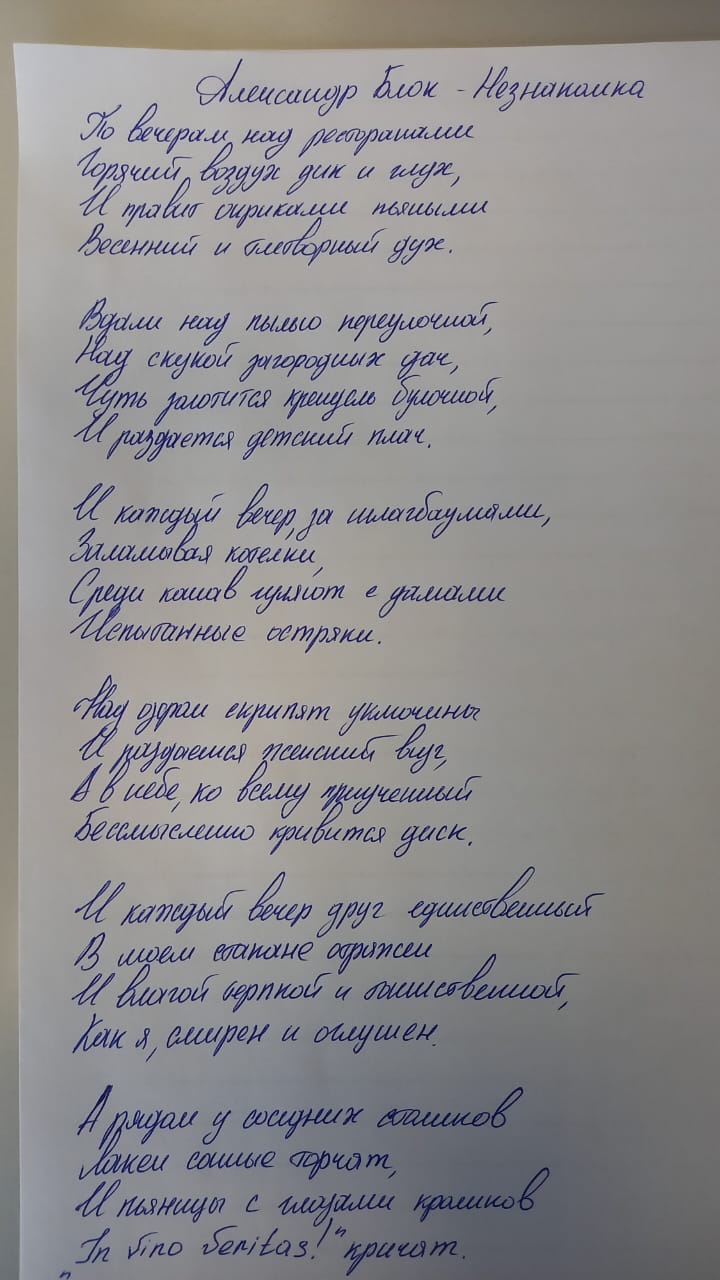 Александр Блок - Незнакомка
По вечерам над ресторанами
Горячий воздух дик и глух,
И правит окриками пьяными
Весенний и тлетворный дух.
Вдали над пылью переулочной,
Над скукой загородных дач,
Чуть золотится крендель булочной,
И раздается детский плач.
И каждый вечер, за шлагбаумами,
Заламывая котелки,
Среди канав гуляют с дамами
Испытанные остряки.
Над озером скрипят уключины
И раздается женский визг,
А в небе, ко всему приученный
Бессмысленно кривится диск.
И каждый вечер друг единственный
В моем стакане отражен
И влагой терпкой и таинственной,
Как я, смирен и оглушен.
А рядом у соседних столиков
Лакеи сонные торчат,
И пьяницы с глазами кроликов
"In vino veritas!" кричат.